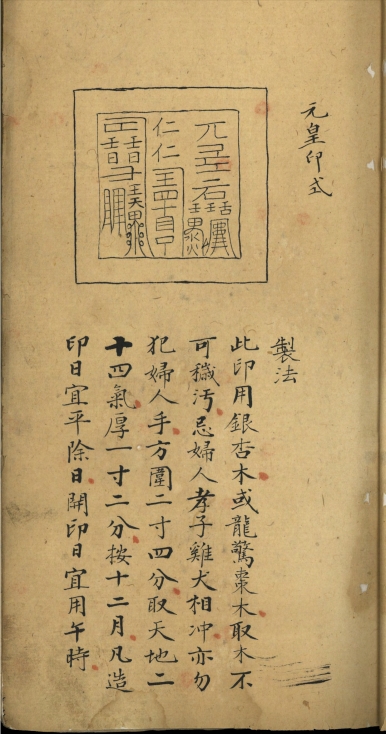 元皇印式
製法
此印用銀杏木或龍驚棗木取木不
可穢汚忌婦人孝子雞犬相冲亦勿
犯婦人手方圍二寸四分取天地二
十四氣厚一寸二分按十二月凡造
印日宜平除日開印日宜用午時